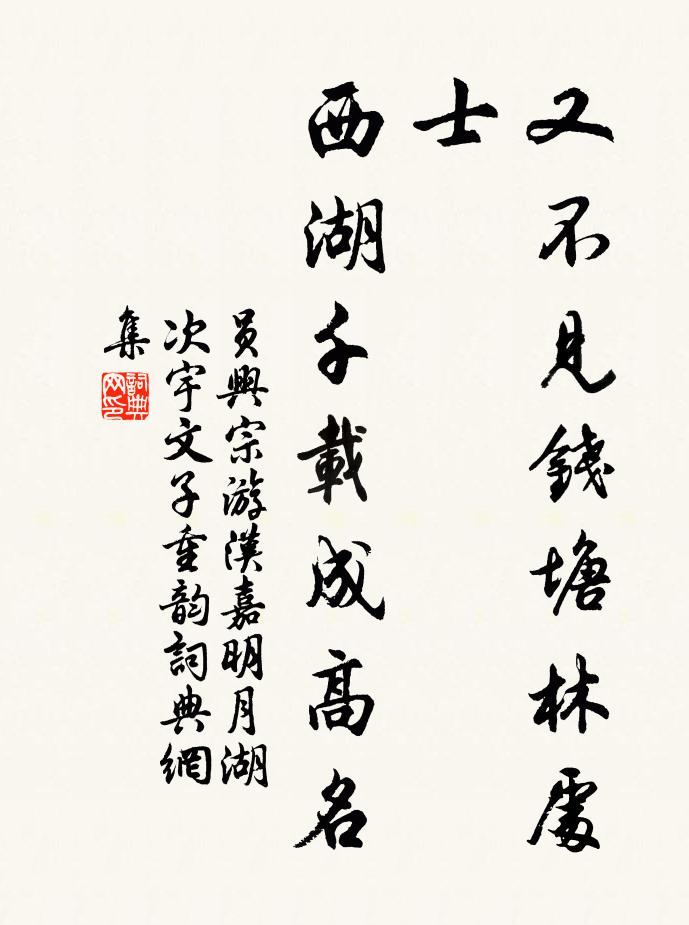 又不見錢塘林處
士
西湖千載成高名
員興宗游漢嘉明月湖
次宇文子重韵詞典網
集
詞典
网印